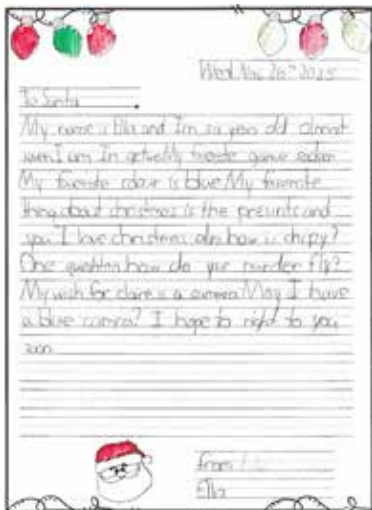 Wed Nov 26th 2025
To Santa
My name is Ella and I'm six years old almost
seven I am In My favorite game
My favorite colour is blue My favorite
thing about christmas is the presunts and
you I love christmas how is chipy?
One how do your fly?
My wish for is a May I have
a blue camra? I hope to right to you
soon
From
Ella